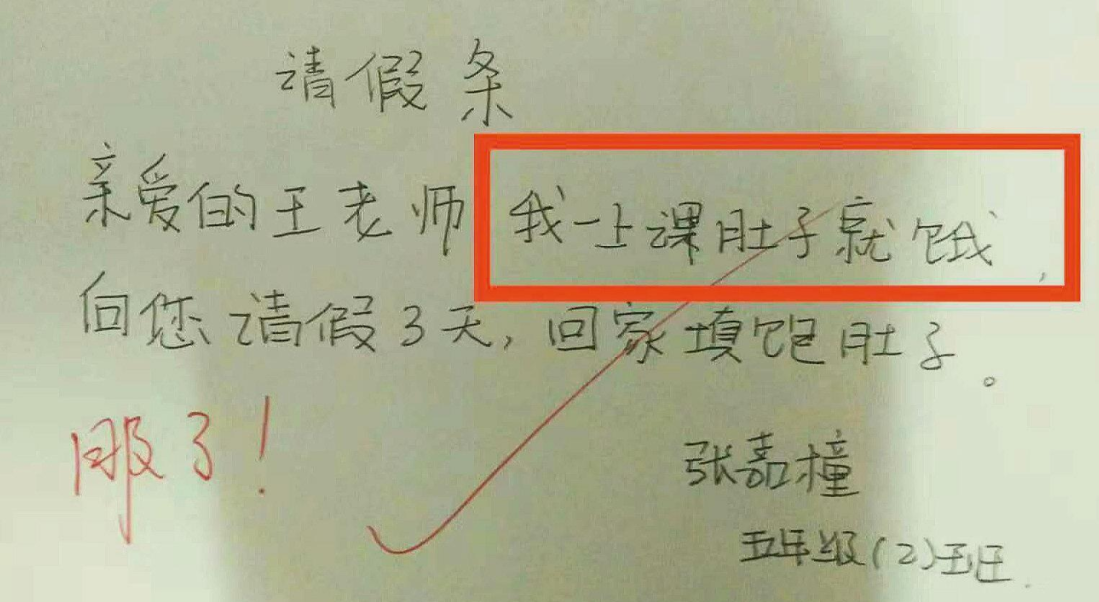 请假条
亲爱的王老师 我一上课肚子就饿,
向您请假3天,回家填饱肚子。
服了!
张嘉橦
五年级(2)班